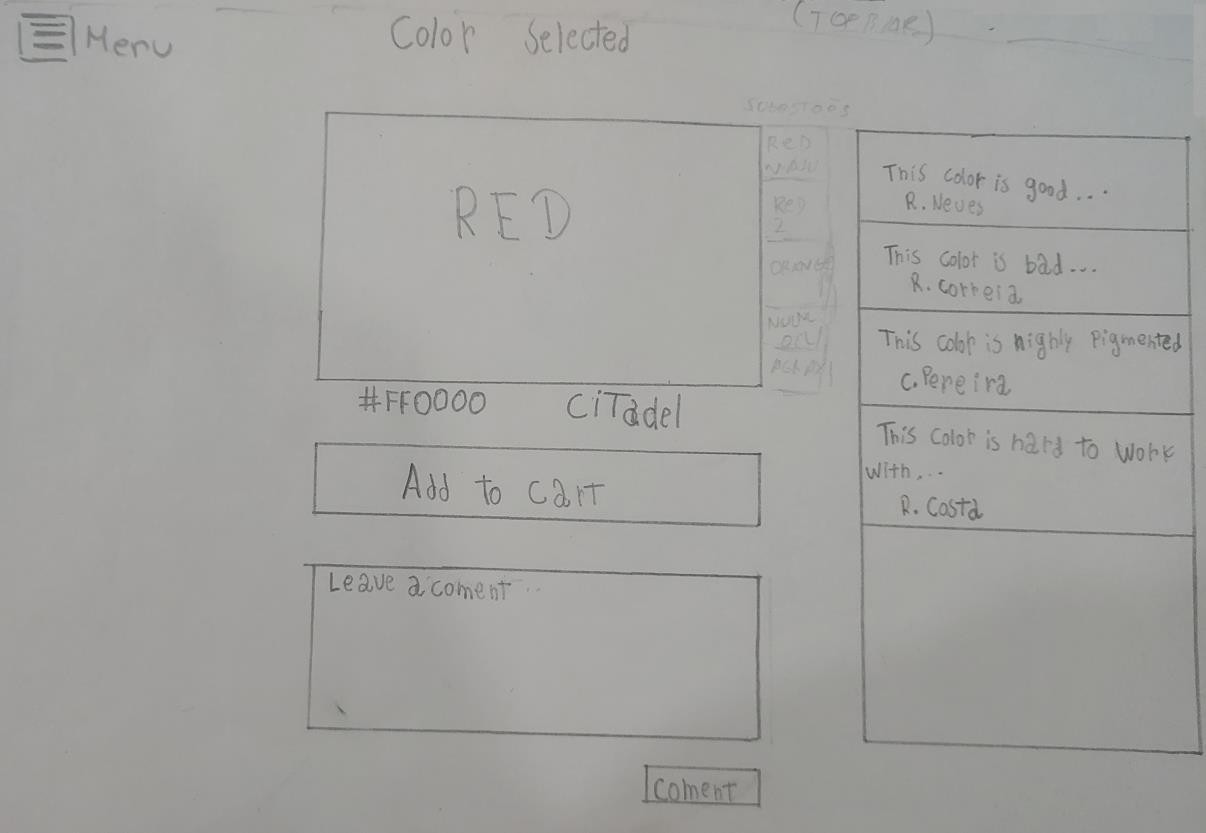 (TOPBAR)
Menu
Color Selected
RED
RED
RED
2
ORANGE
#FF0000 CiTadel
Add to cart
Leave a coment...
coment
This color is good...
R. Neves
This color is bad...
R. Correia
This color is highly Pigmented
C. Pereira
This color is hard to work
with...
R. Costa